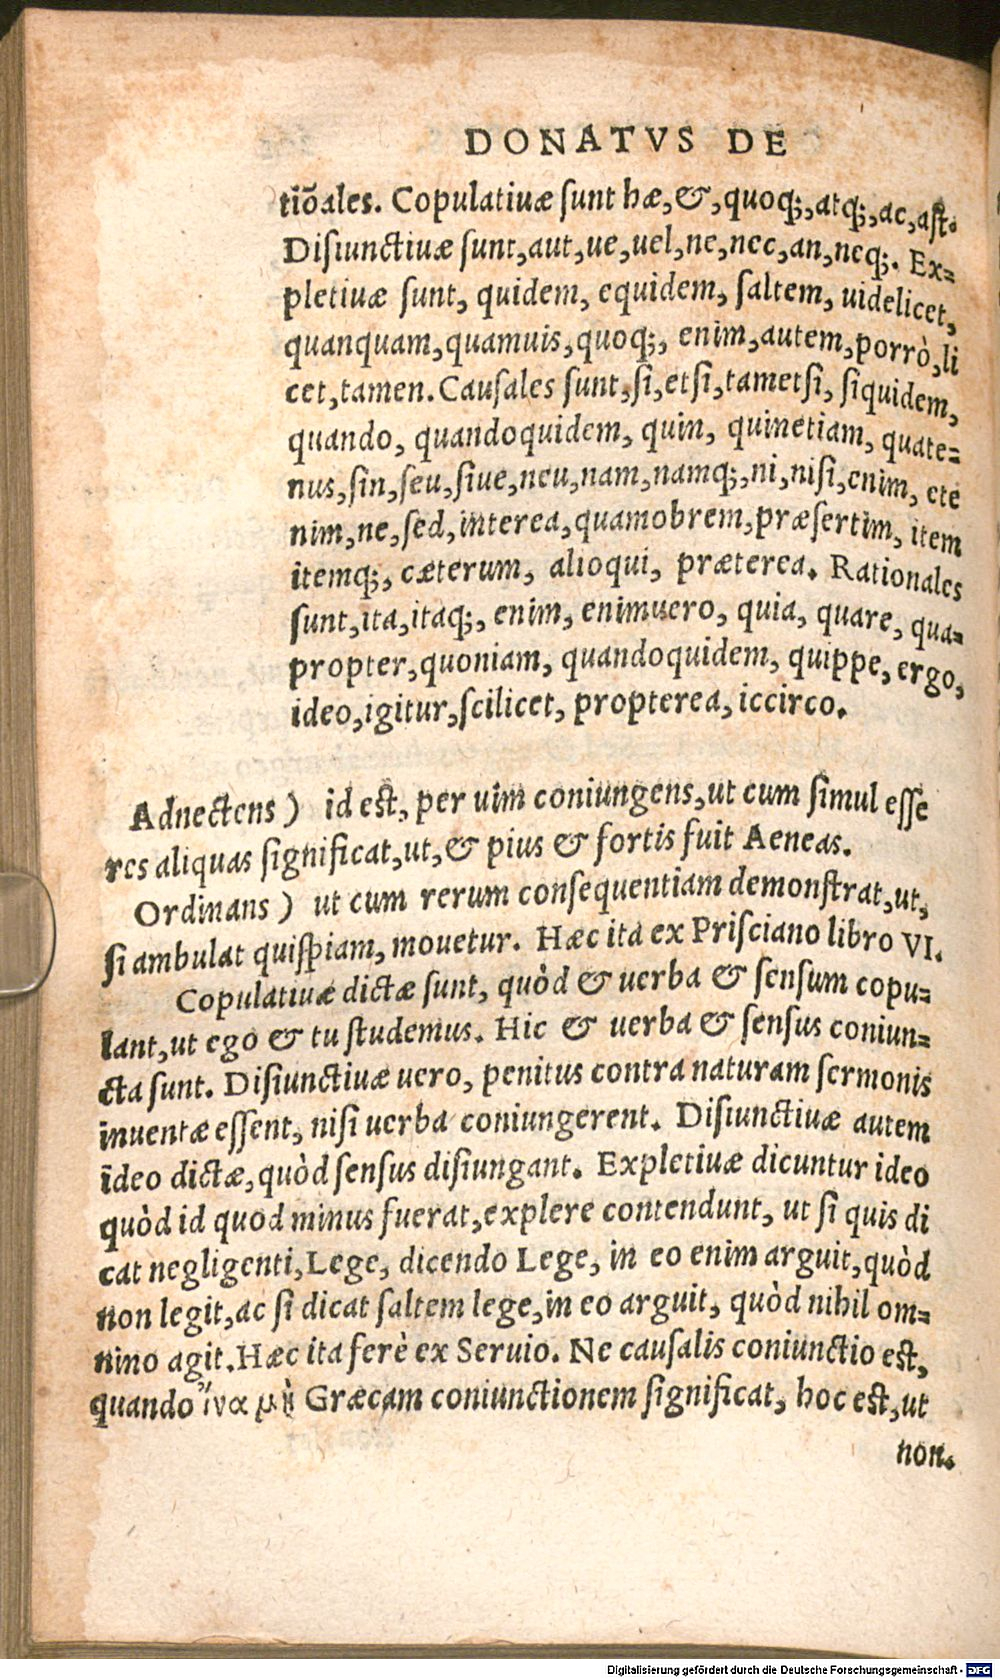 DONATVS DE
tiõales. Copulatiuæ ſunt hæ,&,quoq;,atq;,ac,aſt.
Diſiunctiuæ ſunt,aut,ue,uel,ne,nec,an,neq;. Ex-
pletiuæ ſunt, quidem, equidem, ſaltem, uidelicet,
quanquam,quamuis,quoq;, enim,autem,porrò,li
cet,tamen.Cauſales ſunt,ſi,etſi,tametſi, ſiquidem,
quando, quandoquidem, quin, quinetiam, quate-
nus,ſin,ſeu,ſiue,neu,nam,namq;,ni,niſi,enim, ete
nim,ne,ſed,interea,quamobrem,præſertim, item
itemq;, cæterum, alioqui, præterea. Rationales
ſunt,ita,itaq;, enim, enimuero, quia, quare, qua-
propter,quoniam, quandoquidem, quippe, ergo,
ideo,igitur,ſcilicet, propterea, iccirco.
Adnectens) id eſt, per uim coniungens,ut cum ſimul eſſe
res aliquas ſignificat,ut,& pius & fortis fuit Aeneas.
Ordinans) ut cum rerum conſequentiam demonſtrat,ut,
ſi ambulat quiſpiam, mouetur. Hæc ita ex Priſciano libro VI.
Copulatiuæ dictæ ſunt, quòd & uerba & ſenſum copu-
lant,ut ego & tu ſtudemus. Hic & uerba & ſenſus coniun-
cta ſunt. Diſiunctiuæ uero, penitus contra naturam ſermonis
inuentæ eſſent, niſi uerba coniungerent. Diſiunctiuæ autem
ideo dictæ,quòd ſenſus diſiungant. Expletiuæ dicuntur ideo
quòd id quod minus fuerat,explere contendunt, ut ſi quis di
cat negligenti,Lege, dicendo Lege, in eo enim arguit,quòd
non legit,ac ſi dicat ſaltem lege,in eo arguit, quòd nihil om-
nino agit.Hæc ita ferè ex Seruio. Ne cauſalis coniunctio eſt,
quando ἵνα μὴ Græcam coniunctionem ſignificat, hoc eſt,ut
non.
Digitalisierung gefördert durch die Deutsche Forschungsgemeinschaft - DFG